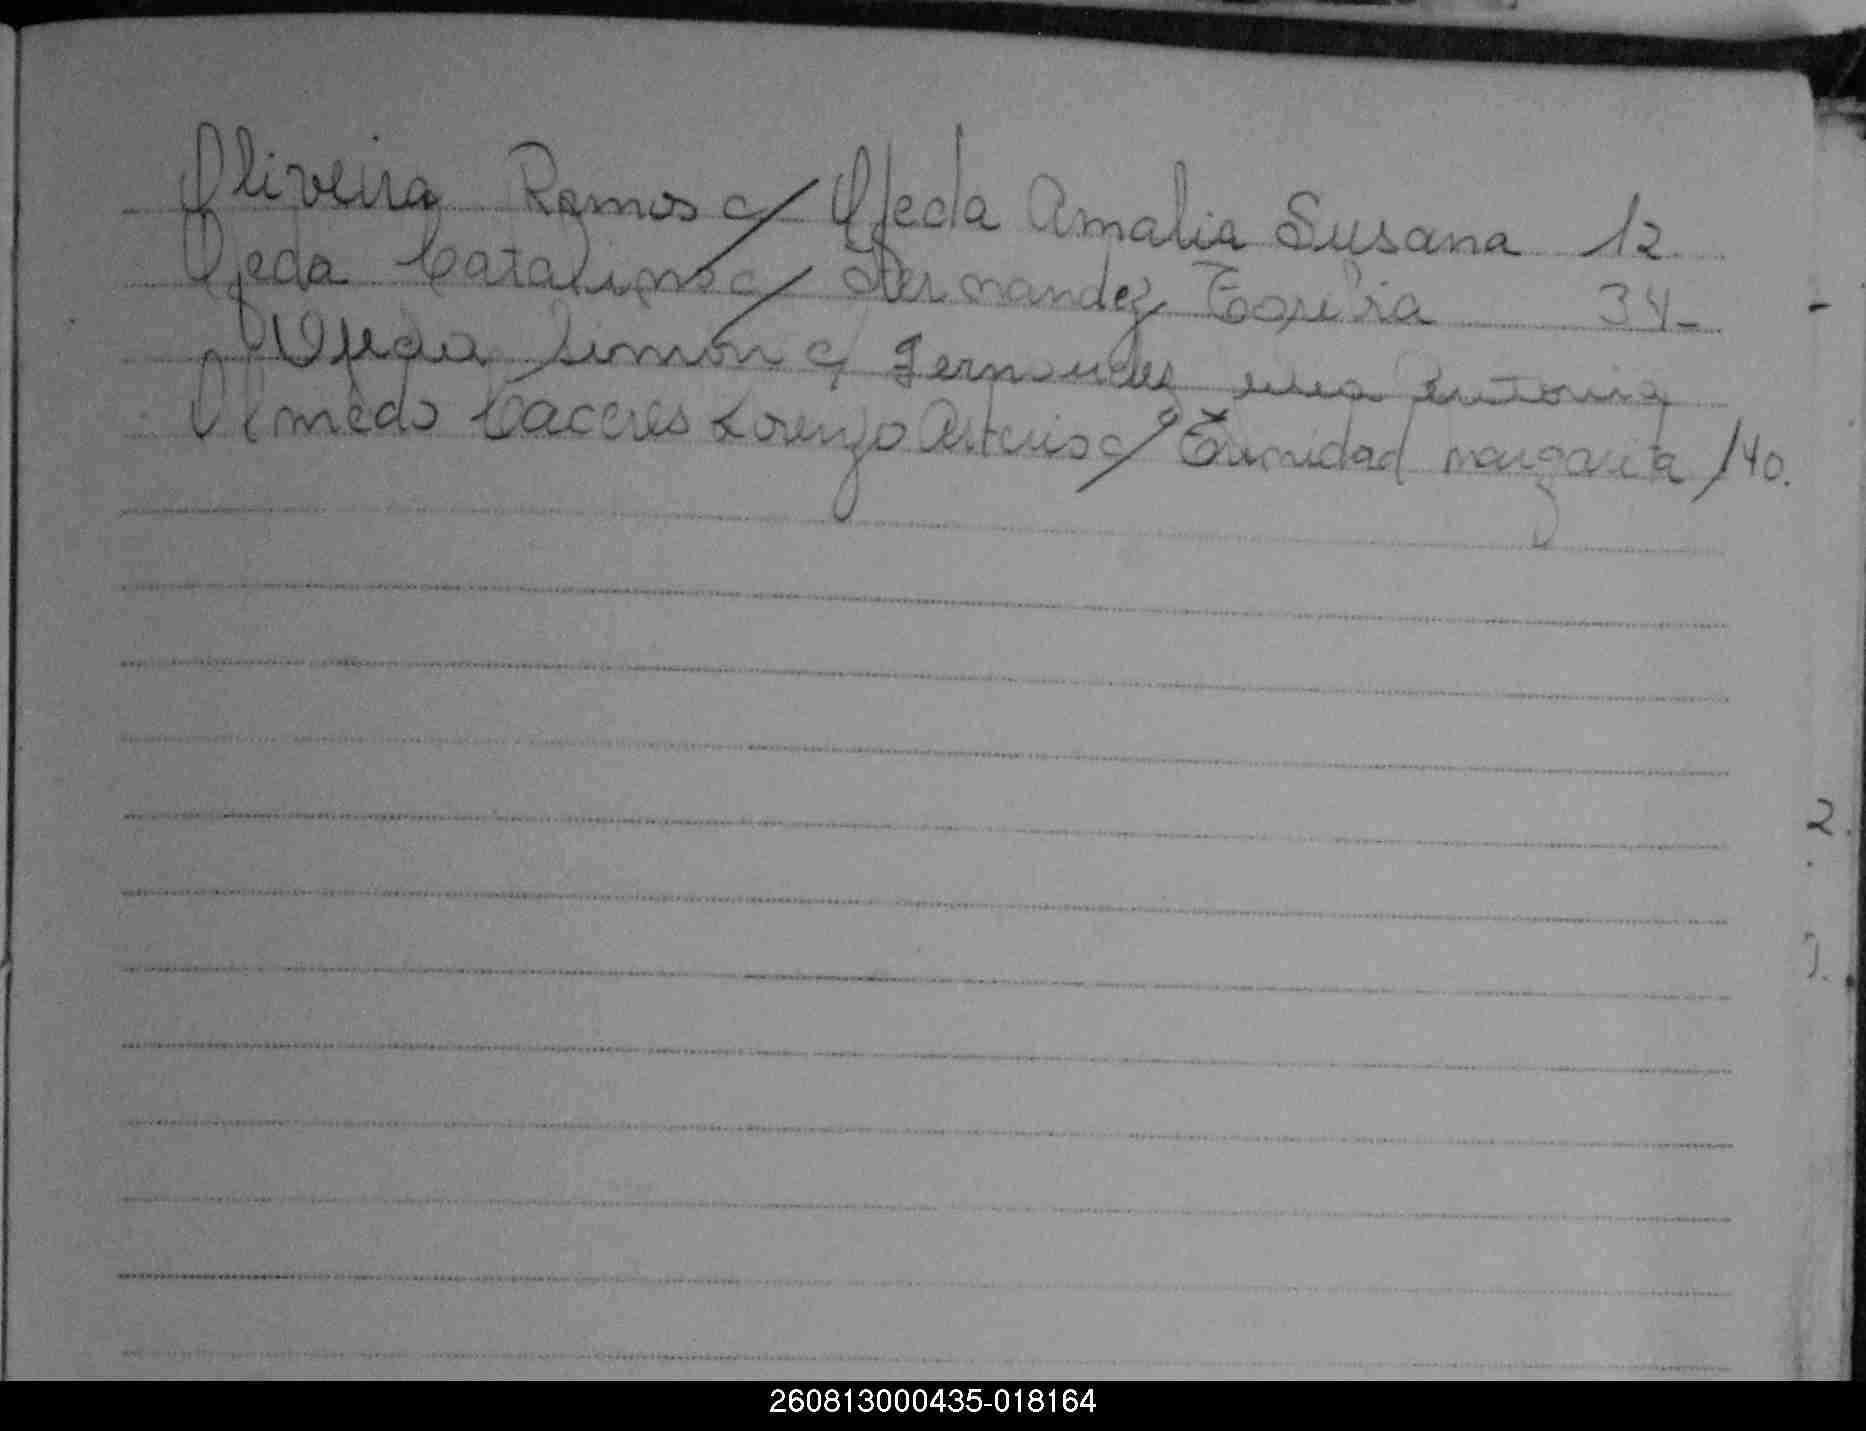 Oliveira Ramos c/ Ojeda Amalia Susana 12
Ojeda Catalino c/ Hernandez Toribia 34-
Ojeda Simon c/ Fernandez Antonia
Olmedo Caceres Lorenzo Asterio c/ Trinidad Margarita /40.
2.
260813000435-018164